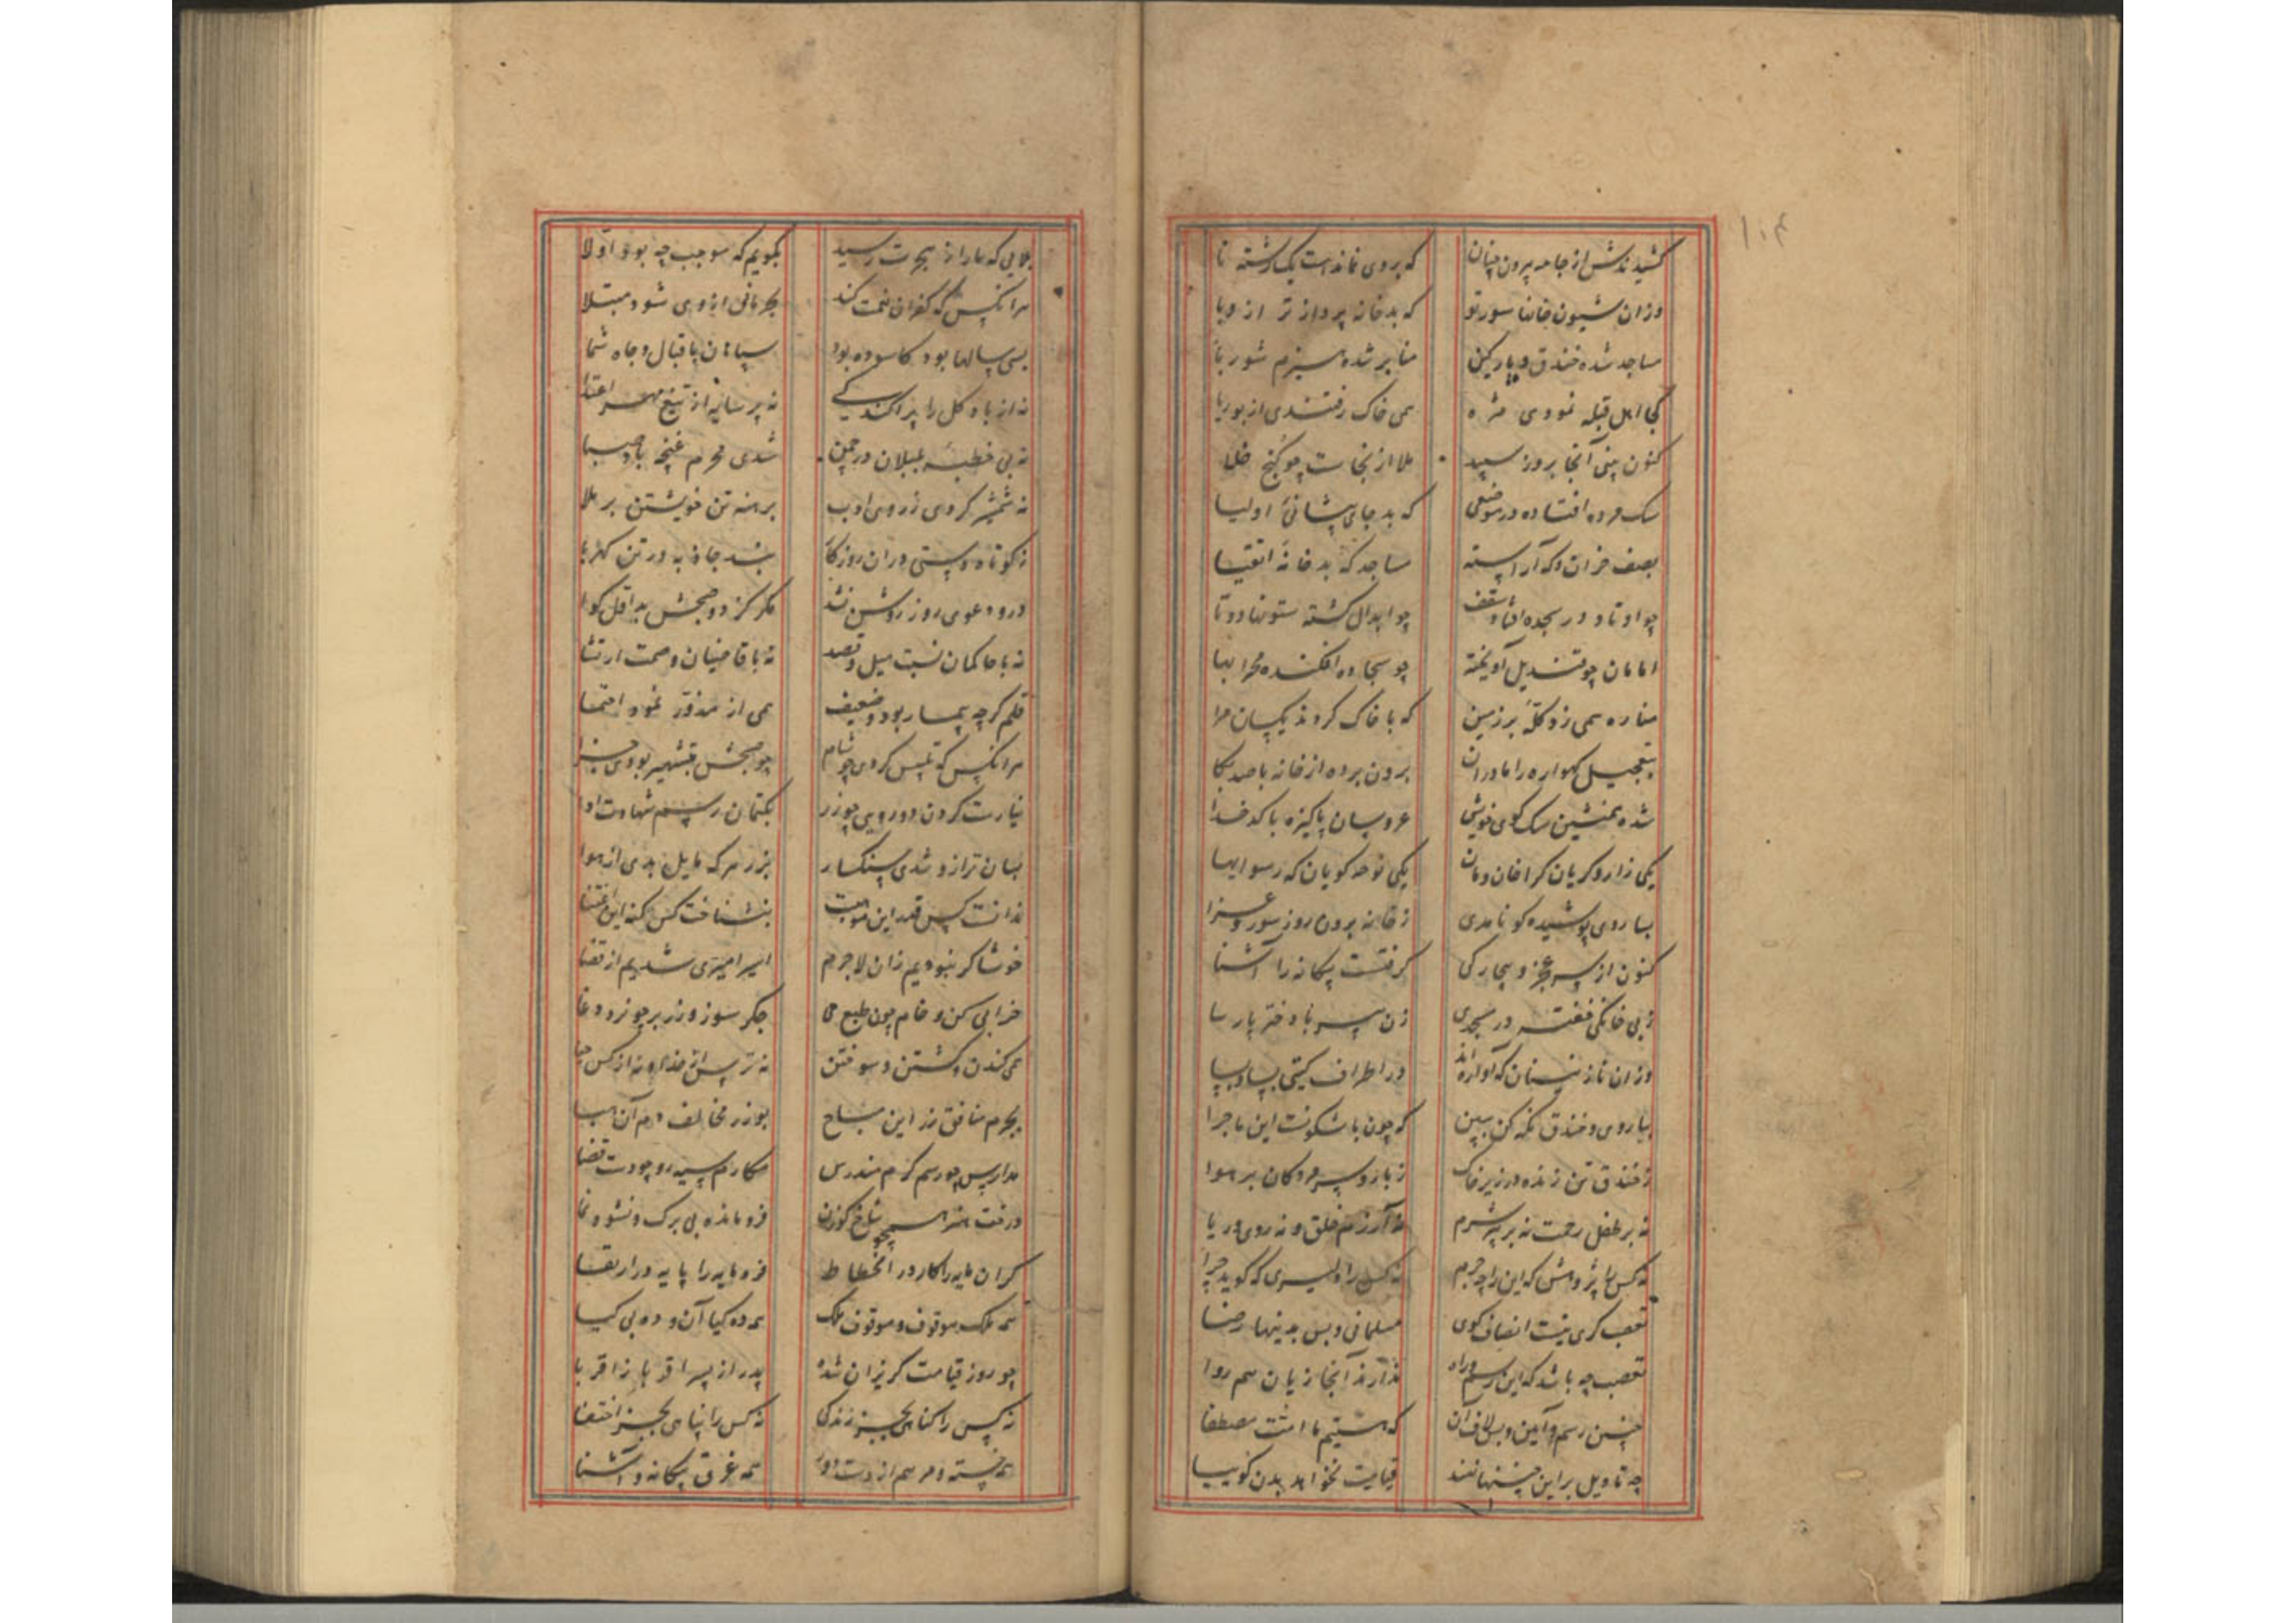 ۱۰۴
کشیدندش از جامه بیرون چنان که بر وی نماندست یک رشته تا
وزان شیون خانها سور تو که بد خانه پرداز تر از وبا
مساجد شده خندق و پارکین منابر شده هیزم شوربا
کجا اهل قبله نمودی مژه همی خاک رفتندی از بوریا
کنون بینی آنجا بروز سپید ملا از نجاست چو کنج خلا
سک مرده افتاده در موضعی که بد جای پیشانی اولیا
بصف خران آراسته مساجد که بد خانه اتقیا
چو اوتاد در سجده افتاد سقف چو ابدال کشته ستونها دوتا
امامان چو قندیل آویخته چو سجاده افکنده محرابها
مناره همی زد کله بر زمین که با خاک کردند یکسان مرا
بتعجیل کهواره را مادران برون برده از خانه با صد بکا
شده همنشین سک کوی خویش عروسان پاکیزه با کدخدا
یکی زار و کریان کز اخان ومان یکی نوحه کویان که رسواییها
بسا روی پوشیده کو نامدی ز خانه برون روز سور و عزا
کنون از سر عجز و بیچارکی کرفتست بیکانه را آشنا
ز بی خانکی خفته در مسجدی زن پسر با دختر پارسا
وزان نازنینان که آواره‌اند در اطراف کیتی بسا و بسا
بباروی و خندق نکه کن ببین که چون باشکونست این ماجرا
ز خندق تن زنده در زیر خاک ز بارو سر مردکان بر هوا
نه بر طفل رحمت نه بر پیر شرم نه آزرم خلق و نه روی و ریا
نه کس را پژوهش که این را چه جرم نه کس را دلیری که کوید چرا
تعصب کری نیست انصاف کوی مسلمانی و بس بدینها رضا
تعصب چه باشد که این رسم و راه ندارند آنجا زیان هم روا
چنین رسم و آیین و بس لاف آن که هستیم ما امت مصطفا
چه تاویل بر این چنینها نهند قیامت نخواهد بدن کوییا
بلایی که ما را ز هجرت رسید بکویم که موجب چه بود اولا
هرانکس که کفران نعمت کند بحرمانی از وی شود مبتلا
بسی سالها بود کاسوده بود سپاهان باقبال و جاه شما
نه از باد کل را پراکندکی نه بر سایه از تیغ مهر اعتدا
نه بی خطبه بلبلان در چمن شدی محرم غنچه باد صبا
نه شمشیر کردی ز روی ادب برهنه تن خویشتن بر ملا
ز کوتاه دستی دران روزکار نشد جاذبه در تن کهربا
درو دعوی روز روشن نشد مکر کز دو صبحش بد اول کوا
نه با حاکمان نسبت میل و قصد نه با قاضیان وصمت ارتشا
قلم کرچه بیمار بود و ضعیف همی از مزور نمود احتما
هرانکس که تلبیس کردی چو شام چو صبحش بتشهیر بودی جزا
نیارست کردن دورویی چو زر بکتمان رسم شهادت ادا
بسان ترازو شدی سنکسار بزر هرکه مایل بدی از هوا
ندانست کس قدر این موهبت بنشناخت کس کنه این اغتنا
خوشاکر نبودیم زان لاجرم اسیر امیری شدیم از قضا
خرابی کن و خام چون طبع می جکر سوز و زر بر چو نرد دغا
همی کندن و کشتن و سوختن نه ترس از خدا و نه از کس حیا
بجرم منافق زر این مباح بوزر مخالف دم آن هبا
مدارس چو رسم کرم مندرس مکارم سیه رو چو دست قضا
درخت هنر همچو شاخ کوزن فرومانده بی برک و نشو و نما
کران مایه را کار در انحطاط فرومایه را پایه در ارتقا
همه ملک موقوف و موقوف ملک همه ده کیا آن و ده بی کیا
چو روز قیامت کریزان شده پدر از پسر اقربا ز اقربا
نه کس را کناهی بجز زندکی نه کس را پناهی بجز اختفا
همه خسته و مرهم از دست دور همه غرق بیکانه و آشنا